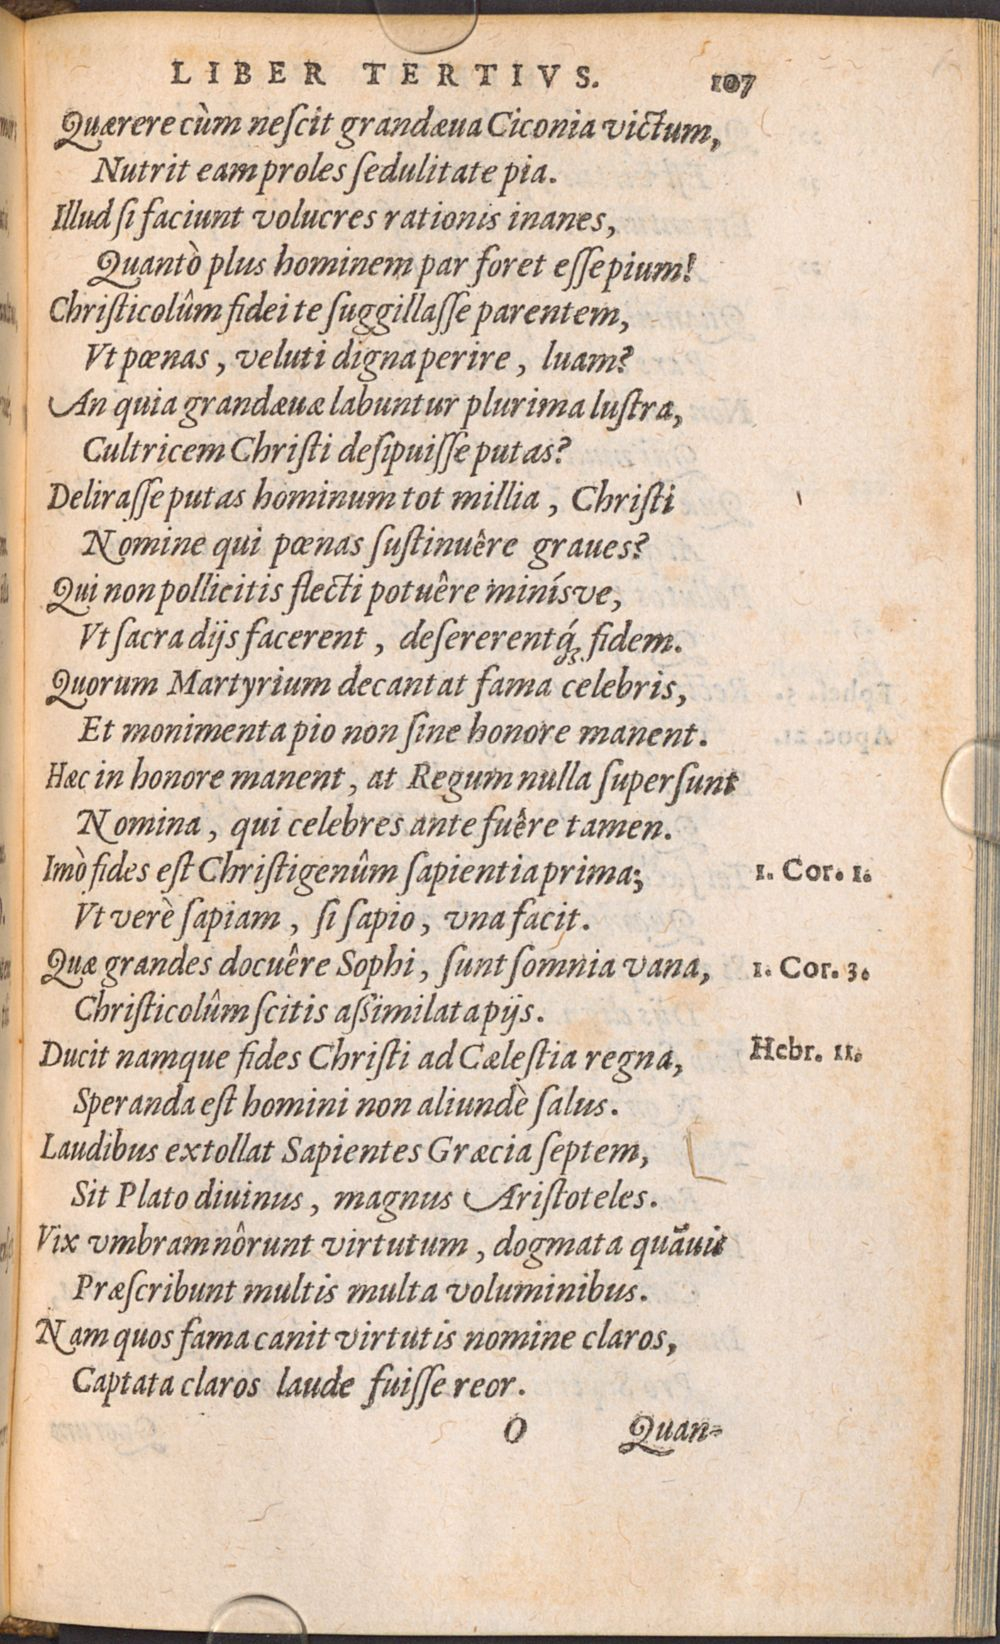 LIBER TERTIVS. 107
Quærere cùm neſcit grandæua Ciconia victum,
Nutrit eam proles ſedulitate pia.
Illud ſi faciunt volucres rationis inanes,
Quantò plus hominem par foret eſſe pium!
Chriſticolûm fidei te ſuggillaſſe parentem,
Vt pœnas, veluti digna perire, luam?
An quia grandæuæ labuntur plurima luſtra,
Cultricem Chriſti deſipuiſſe putas?
Deliraſſe putas hominum tot millia, Chriſti
Nomine qui pœnas ſuſtinuêre graues?
Qui non pollicitis flecti potuêre minísve,
Vt ſacra dijs facerent, deſererentq́ꝫ fidem.
Quorum Martyrium decantat fama celebris,
Et monimenta pio non ſine honore manent.
Hæc in honore manent, at Regum nulla ſuperſunt
Nomina, qui celebres ante fuêre tamen.
Imò fides eſt Chriſtigenûm ſapientia prima; 1. Cor. 1.
Vt verè ſapiam, ſi ſapio, vna facit.
Quæ grandes docuêre Sophi, ſunt ſomnia vana, 1. Cor. 3.
Chriſticolûm ſcitis aſsimilata pijs.
Ducit namque fides Chriſti ad Cæleſtia regna, Hebr. 11.
Speranda eſt homini non aliundè ſalus.
Laudibus extollat Sapientes Græcia ſeptem,
Sit Plato diuinus, magnus Ariſtoteles.
Vix vmbram nôrunt virtutum, dogmata quãuis
Præſcribunt multis multa voluminibus.
Nam quos fama canit virtutis nomine claros,
Captata claros laude fuiſſe reor.
O Quan-